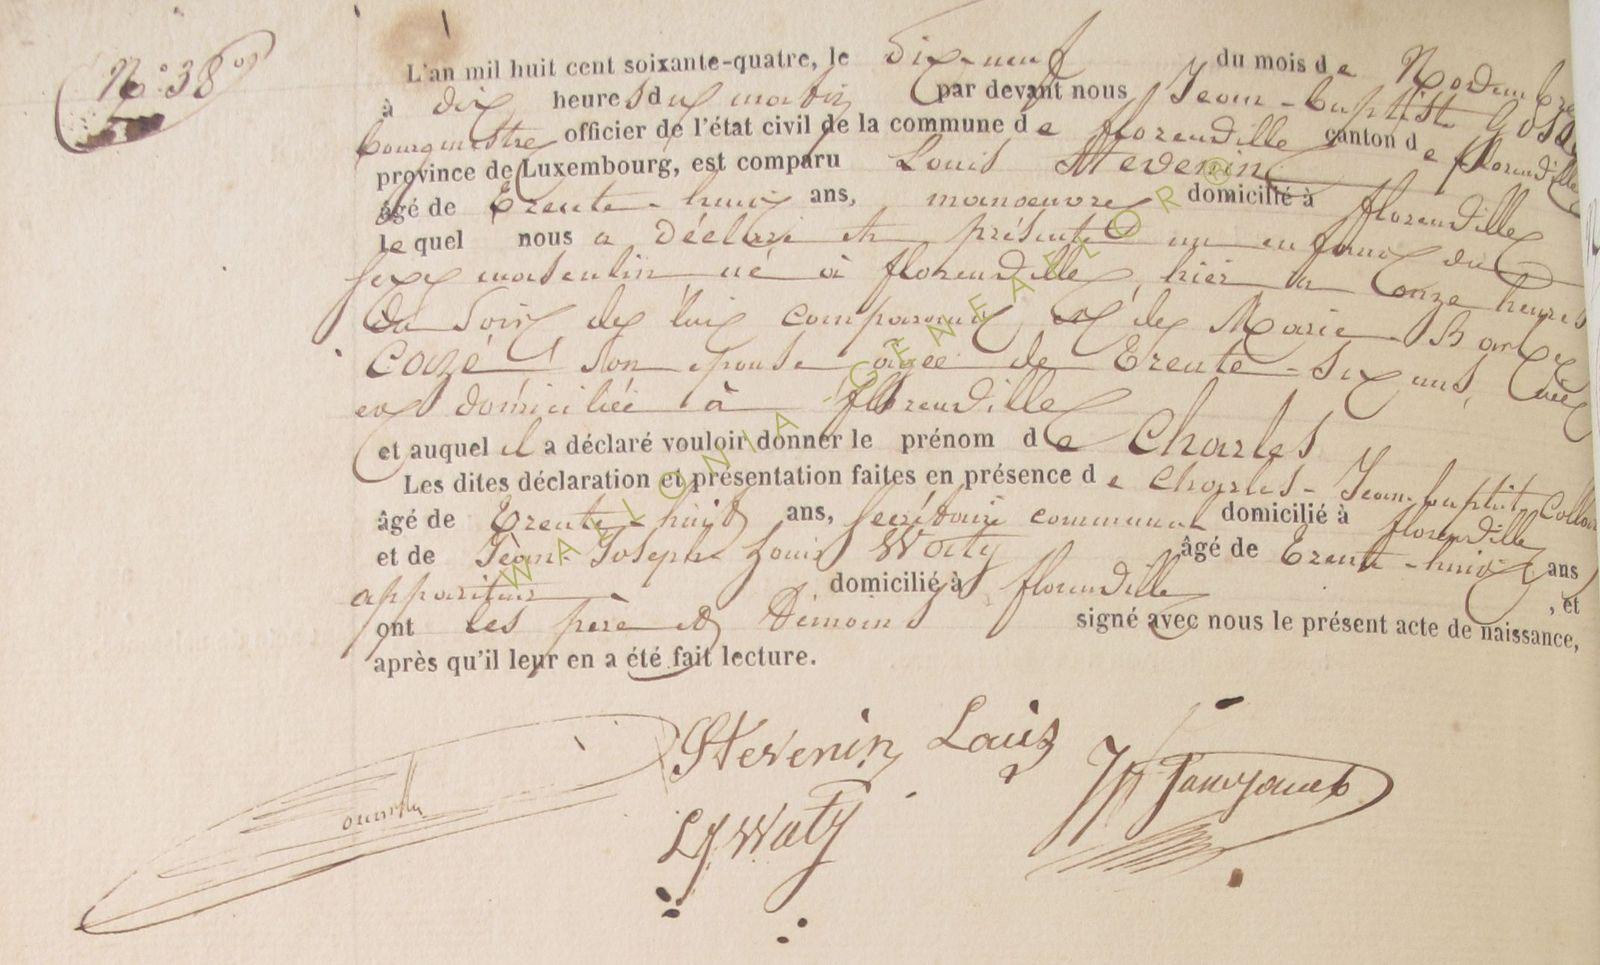 N° 38
L'an mil huit cent soixante-quatre, le dix-neuf du mois de Novembre
à dix heures du matin par devant nous Jean-baptiste
bourgmestre officier de l'état civil de la commune de florenville canton de florenville
province de Luxembourg, est comparu Louis Stevenin
âgé de trente-huit ans, manoeuvre domicilié à florenville
lequel nous a déclaré et présenté un enfant du
sexe masculin né à florenville, hier à onze heures
du soir de lui comparant et de Marie Barbe
Cozé son épouse âgée de trente-six ans,
et domiciliée à florenville
et auquel il a déclaré vouloir donner le prénom de Charles
Les dites déclaration et présentation faites en présence de Charles-Jean-baptiste
âgé de trente-huit ans, secrétaire communal domicilié à florenville
et de Jean Joseph Louis Waty âgé de trente-huit ans
appariteur domicilié à florenville, et
ont les père et témoins signé avec nous le présent acte de naissance,
après qu'il leur en a été fait lecture.
Stevenin Louis
LJ Waty
WALLONIA-GENEAFLOR®